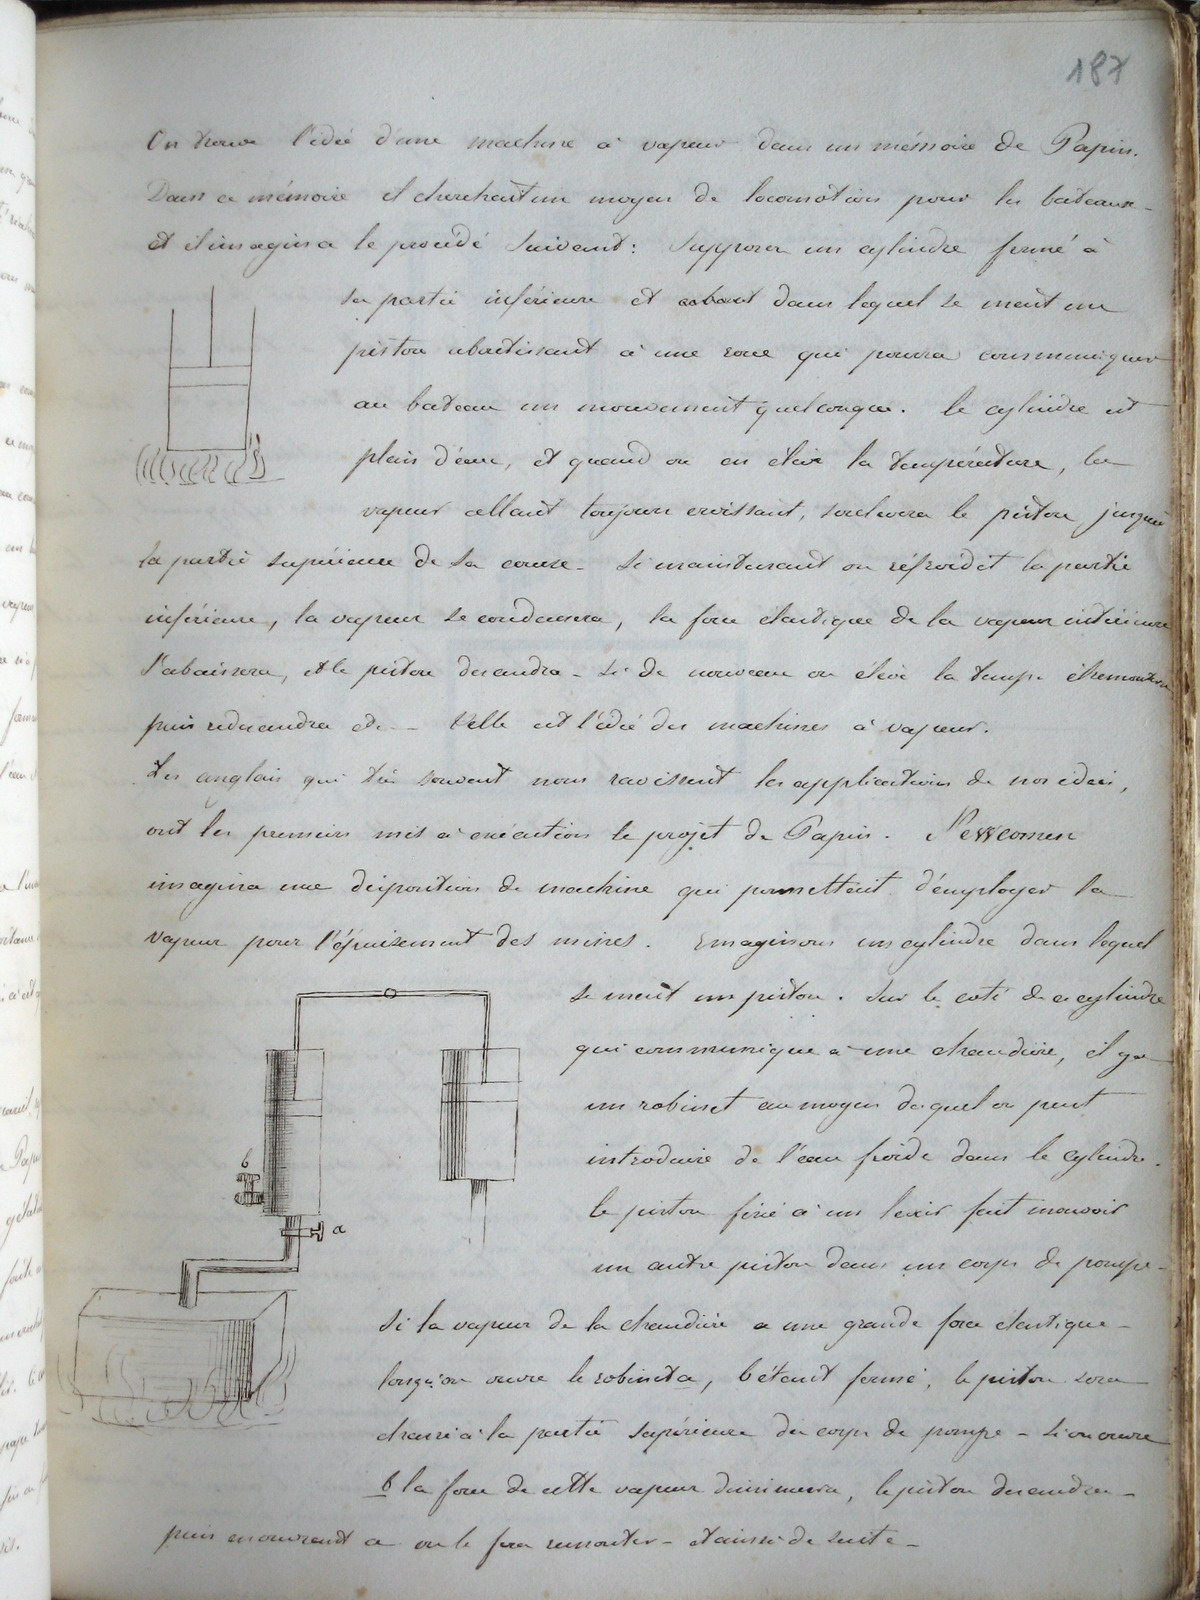 187
On trouve l'idée d'une machine à vapeur dans un mémoire de Papin.
Dans ce mémoire il cherchait un moyen de locomotion pour les bateaux -
et il imagina le procédé suivant: Supposer un cylindre fermé à
sa partie inférieure et dans lequel se meut un
piston aboutissant à une roue qui pourra communiquer
au bateau un mouvement quelconque. le cylindre est
plein d'eau, et quand on en élève la température, la
vapeur allant toujours croissant, soulevera le piston jusqu'à
la partie supérieure de sa course - Si maintenant on réfroidit la partie
inférieure, la vapeur se condensera, la force élastique de la vapeur intérieure
s'abaissera, et le piston descendra - Si de nouveau on élève la temp. il remontera
puis redescendra etc - Telle est l'idée des machines à vapeur.
Les anglais qui très souvent nous ravissent les applications de nos idées,
ont les premiers mis à exécution le projet de Papin. Newcomen
imagina une disposition de machine qui permettait d'employer la
vapeur pour l'épuisement des mines. Imaginons un cylindre dans lequel
se meut un piston. Sur le coté de ce cylindre
qui communique à une chaudière, il y a
un robinet au moyen duquel on peut
introduire de l'eau froide dans le cylindre.
le piston fixé à un levier fait mouvoir
un autre piston dans un corps de pompe -
b
a
Si la vapeur de la chaudière a une grande force élastique -
lorsqu'on ouvre le robinet a, b étant fermé, le piston sera
chassé à la partie supérieure du corps de pompe - si on ouvre
b la force de cette vapeur diminuera, le piston descendra -
puis en ouvrant a on le fera remonter - et ainsi de suite -